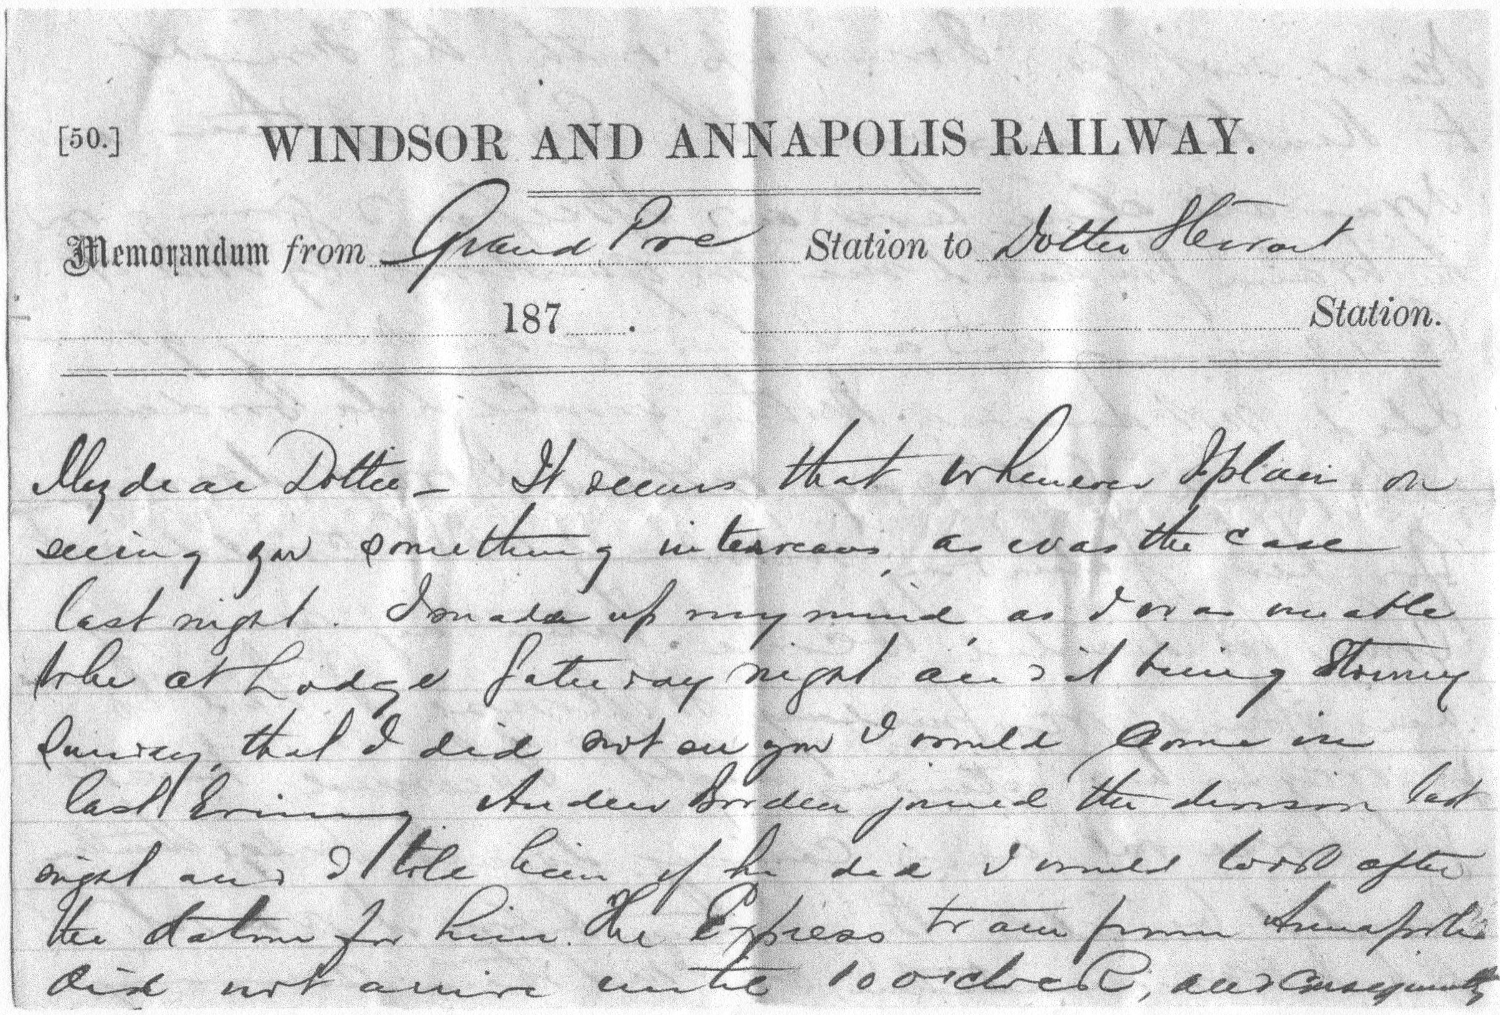 [50.] WINDSOR AND ANNAPOLIS RAILWAY.
Memorandum from Grand Pre Station to Dottie Stewart
187 . Station.
My dear Dottie – It seems that whenever I plan on
seeing you something intervenes, as was the case
last night. I made up my mind, as I was unable
to be at Lodge Saturday night and it being Stormy
Sunday, that I did not see you I would come in
last Evening Andrew Borden joined the division last
night and I told him if he did I would look after
the station for him. The Express train from Annapolis
did not arrive until 10 o'clock, and consequently